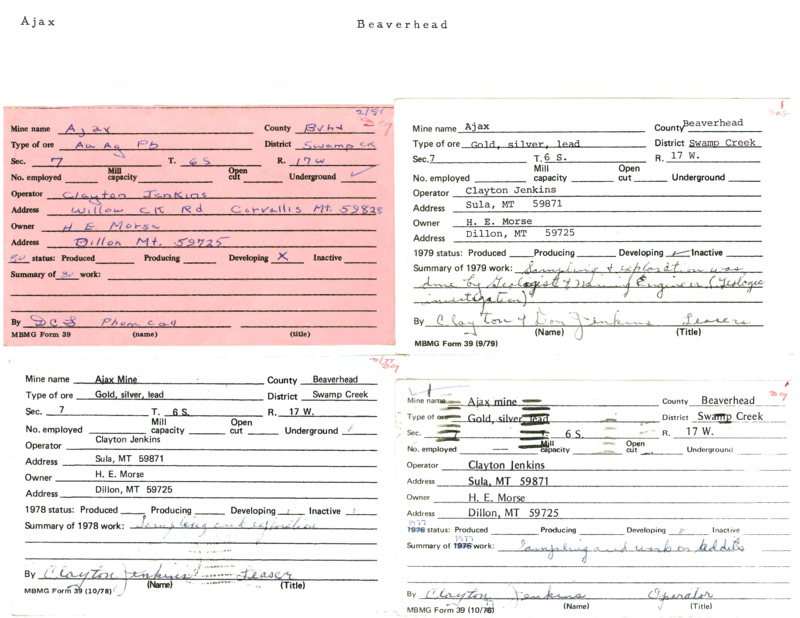 Ajax
Beaverhead
2/81
Mine name Ajax County Bvhd
Type of ore Au Ag Pb District Swamp Ck
Sec. 7 T. 6S R. 17W
No. employed Mill capacity Open cut Underground ✓
Operator Clayton Jenkins
Address Willow CK Rd Corvallis Mt. 59828
Owner H E Morse
Address Dillon Mt. 59725
80 status: Produced Producing Developing X Inactive
Summary of 80 work:
By DCL Phon call
MBMG Form 39 (name) (title)
Mine name Ajax County Beaverhead
Type of ore Gold, silver, lead District Swamp Creek
Sec. 7 T. 6 S. R. 17 W.
No. employed Mill capacity Open cut Underground
Operator Clayton Jenkins
Address Sula, MT 59871
Owner H. E. Morse
Address Dillon, MT 59725
1979 status: Produced Producing Developing ✓ Inactive
Summary of 1979 work: Sampling & exploration was
done by Geologist & Mining Engineer (Geologic
investigation)
By Clayton & Don Jenkins Leasers
(Name) (Title)
MBMG Form 39 (9/79)
Mine name Ajax Mine County Beaverhead
Type of ore Gold, silver, lead District Swamp Creek
Sec. 7 T. 6 S. R. 17 W.
No. employed Mill capacity Open cut Underground
Operator Clayton Jenkins
Address Sula, MT 59871
Owner H. E. Morse
Address Dillon, MT 59725
1978 status: Produced Producing Developing Inactive
Summary of 1978 work: Sampling and exploration
By Clayton Jenkins Leaser
(Name) (Title)
MBMG Form 39 (10/78)
Mine name Ajax mine County Beaverhead
Type of ore Gold, silver, lead District Swamp Creek
Sec. 7 T. 6 S. R. 17 W.
No. employed Mill capacity Open cut Underground
Operator Clayton Jenkins
Address Sula, MT 59871
Owner H. E. Morse
Address Dillon, MT 59725
1977
1976 status: Produced Producing Developing Inactive
1977
Summary of 1976 work: Sampling and work on Addits
By Clayton Jenkins Operator
(Name) (Title)
MBMG Form 39 (10/76)